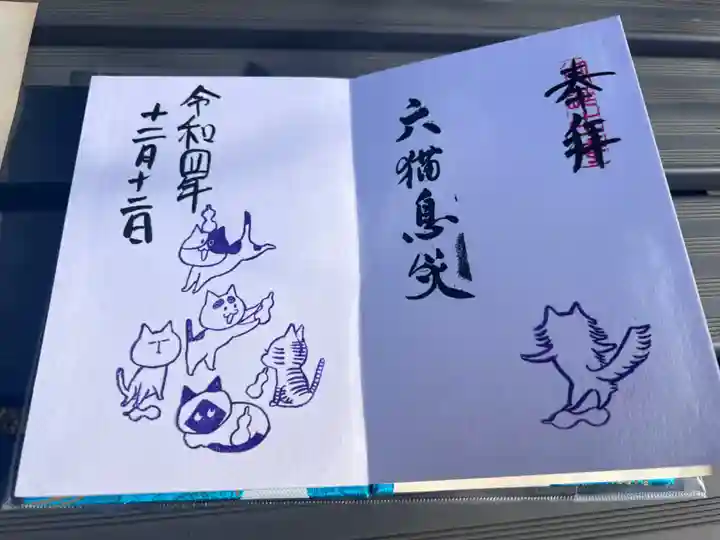 奉拝
六猫息災
令和四年
十二月十二日